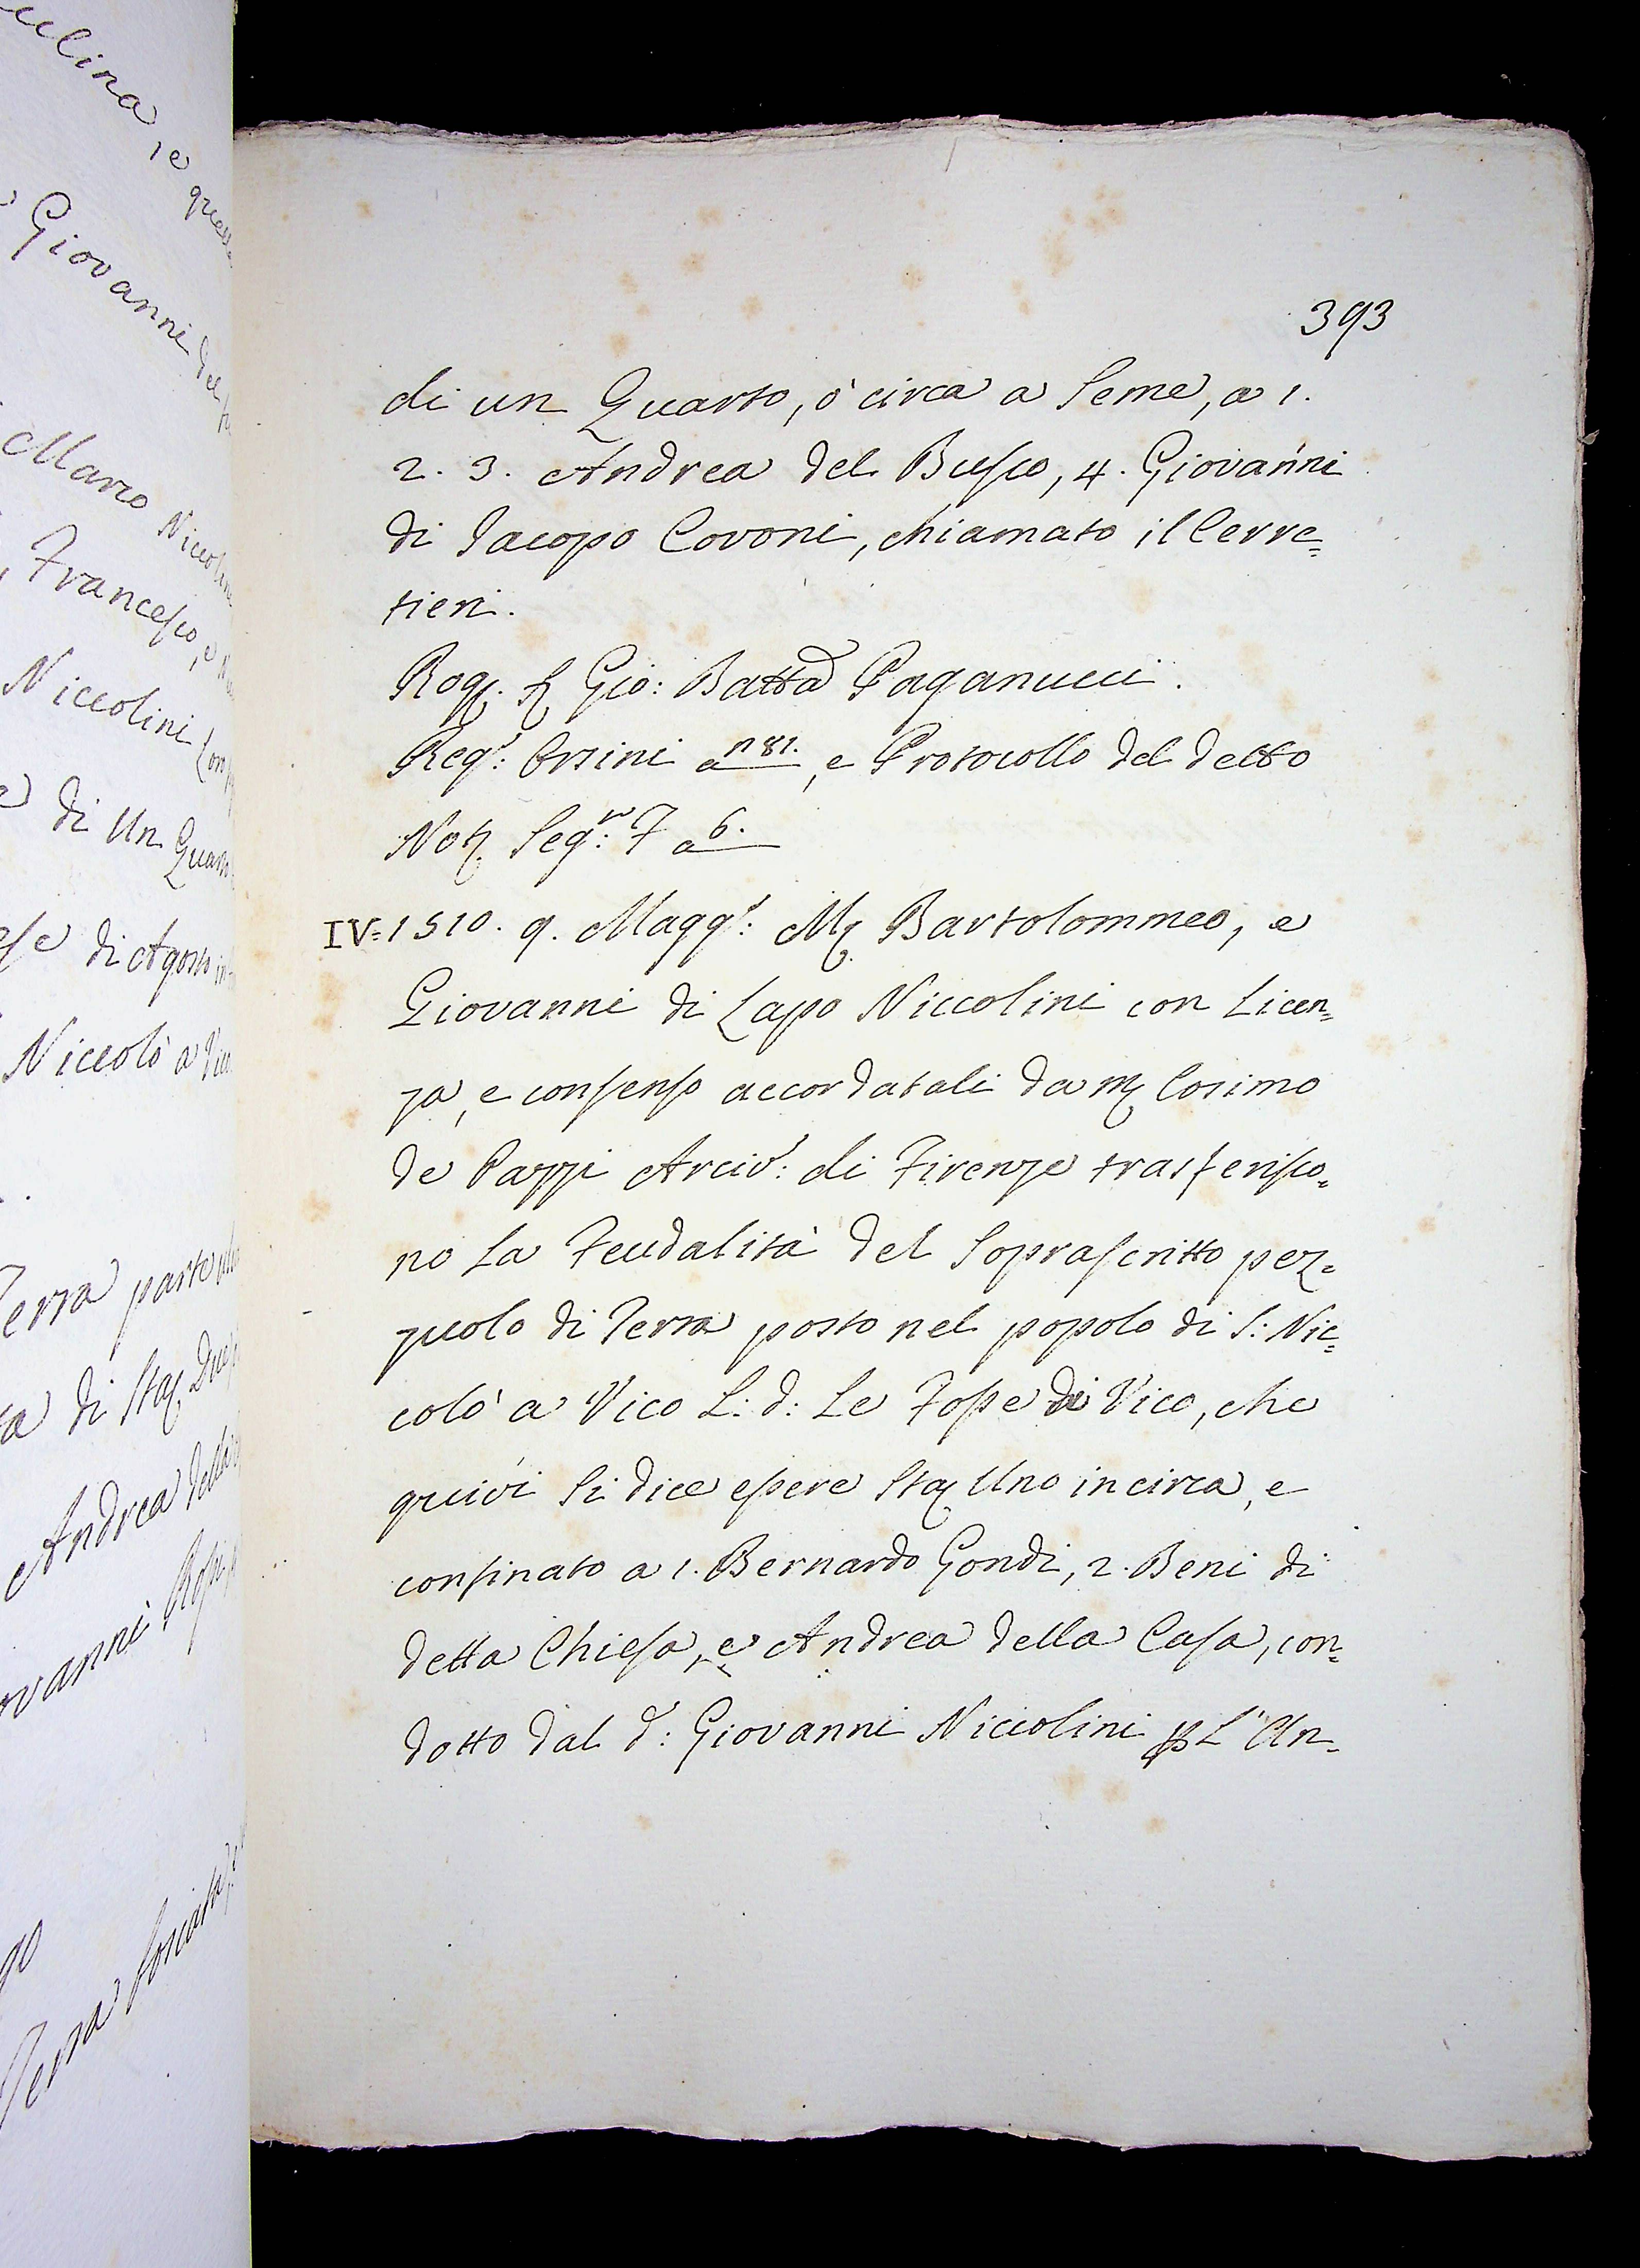 393
di un Quarto, ò circa a Seme, a 1.
2. 3. Andrea del Busco, 4. Giovanni
di Jacopo Covoni, chiamato il Cerre=
tieri.
Rog. S. Gio: Batta Paganucci.
Reg: Orsini a n 81. e Protocollo del detto
Not. Seg: 7 a 6.
IV=1510. 9. Magg: M. Bartolommeo, e
Giovanni di Lapo Niccolini con Licen=
za, e consenso accordatali da M. Cosimo
de Pazzi Arciv: di Firenze trasferisco=
no La Feudalità del Soprascritto pez=
zuolo di Terra posto nel popolo di S: Nic=
colò a Vico L: d: Le Fosse di Vico, che
quivi Si dice essere Sta. Uno in circa, e
confinato a 1. Bernardo Gondi, 2. Beni di
detta Chiesa, e Andrea della Casa, con=
dotto dal d: Giovanni Niccolini p L'An=
Giovanni del
Marco Niccolini
Francesco, e
Niccolini
di Un Quarto
di Agosto in
Niccolò a Vico
Terra parte
di Sta. Due
Andrea della
Terra